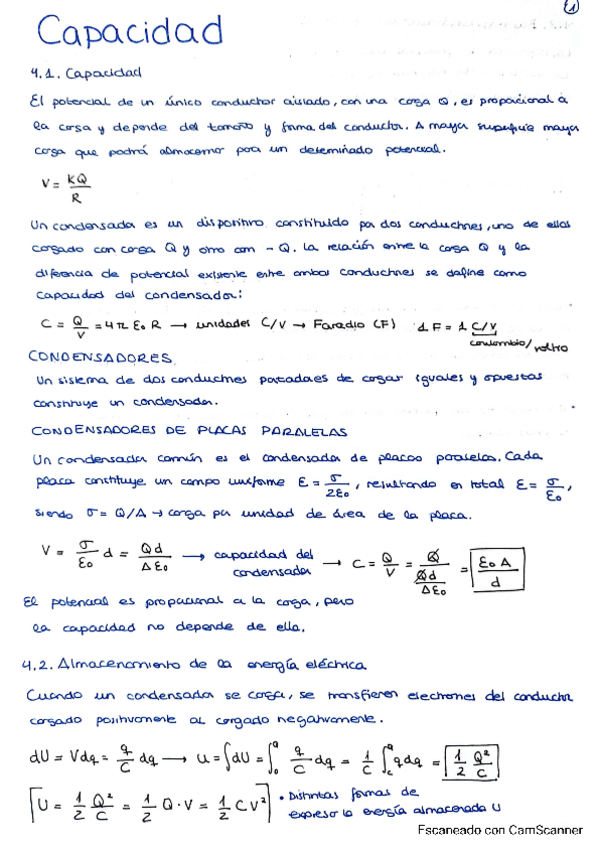 1
Capacidad
4.1. Capacidad
El potencial de un único conductor aislado, con una carga Q, es proporcional a
la carga y depende del tamaño y forma del conductor. A mayor superficie mayor
carga que podrá almacenar para un determinado potencial.
V = KQ/R
Un condensador es un dispositivo constituido por dos conductores, uno de ellos
cargado con carga Q y otro con -Q. La relación entre la carga Q y la
diferencia de potencial existente entre ambos conductores se define como
capacidad del condensador:
C = Q/V = 4π ε₀ R → unidades C/V → Faradio (F) 1 F = 1 C/V
coulombio/voltio
CONDENSADORES
Un sistema de dos conductores portadores de cargas iguales y opuestas
constituye un condensador.
CONDENSADORES DE PLACAS PARALELAS
Un condensador común es el condensador de placas paralelas. Cada
placa constituye un campo uniforme E = σ/2ε₀, resultando en total E = σ/ε₀,
siendo σ = Q/A → carga por unidad de área de la placa.
V = σ/ε₀ d = Qd/Aε₀ → capacidad del condensador → C = Q/V = Q/(Qd/Aε₀) = ε₀A/d
El potencial es proporcional a la carga, pero
la capacidad no depende de ella.
4.2. Almacenamiento de la energía eléctrica
Cuando un condensador se carga, se transfieren electrones del conductor
cargado positivamente al cargado negativamente.
dU = Vdq = q/C dq → u = ∫dU = ∫₀^Q q/C dq = 1/C ∫ q dq = 1/2 Q²/C
U = 1/2 Q²/C = 1/2 Q·V = 1/2 CV² • Distintas formas de
expresar la energía almacenada U
Escaneado con CamScanner